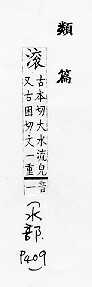 類篇
滾
古本切大水流皃
又古困切文一重
音
一
(水部)
P409